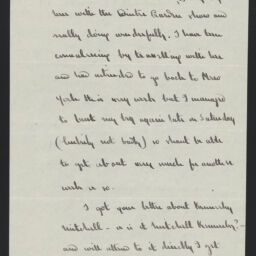 here with the Winter Garden show and
really doing wonderfully. I have been
convalescing by travelling with her
and had intended to go back to New
York this very week but I managed
to bust my leg again late on Saturday
(luckily not badly) so shan't be able
to get about very much for another
week or so.
I got your letter about Kennerley
Mitchell - or is it Mitchell Kennerley? -
and will attend to it directly I get